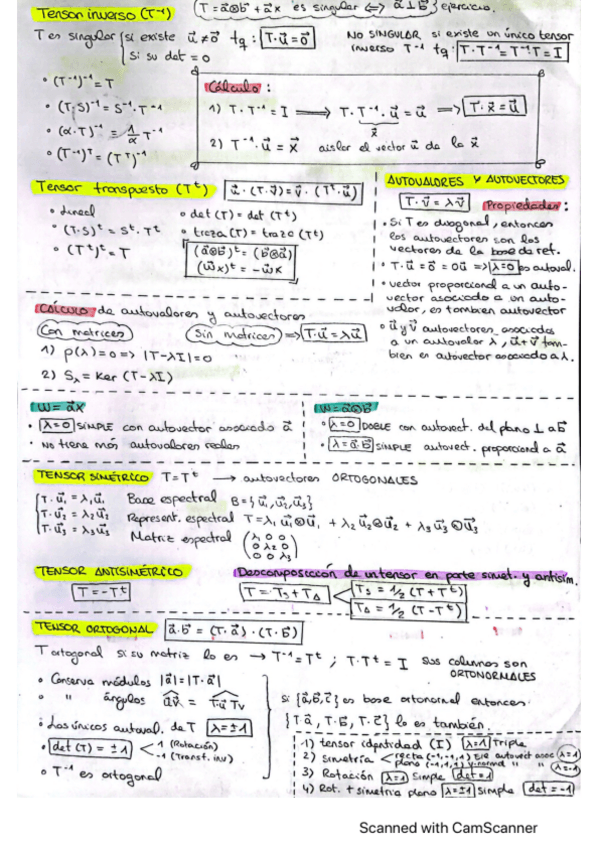 Tensor inverso (T⁻¹) (T = a⃗⊗b⃗ + a⃗x es singular ⟺ a⃗ ⊥ b⃗} ejercicio.
T es singular { si existe u⃗ ≠ o⃗ tq: T·u⃗ = o⃗
si su det = 0
NO SINGULAR si existe un único tensor
inverso T⁻¹ tq: T·T⁻¹ = T⁻¹·T = I
• (T⁻¹)⁻¹ = T
• (T·S)⁻¹ = S⁻¹·T⁻¹
• (α·T)⁻¹ = 1/α T⁻¹
• (T⁻¹)ᵀ = (Tᵀ)⁻¹
Cálculo:
1) T·T⁻¹ = I ⟹ T·T⁻¹·u⃗ = u⃗ ⟹ T·x⃗ = u⃗
x⃗
2) T⁻¹·u⃗ = x⃗ aislar el vector u⃗ de la x⃗
Tensor transpuesto (Tᵗ) u⃗·(T·v⃗) = v⃗·(Tᵗ·u⃗)
• Lineal
• (T·S)ᵗ = Sᵗ·Tᵗ
• (Tᵗ)ᵗ = T
• det(T) = det(Tᵗ)
• traza(T) = traza(Tᵗ)
(a⃗⊗b⃗)ᵗ = (b⃗⊗a⃗)
(w⃗x)ᵗ = -w⃗x
AUTOVALORES Y AUTOVECTORES
T·v⃗ = λ·v⃗ Propiedades:
• Si T es diagonal, entonces
los autovectores son los
vectores de la base de ref.
• T·u⃗ = o⃗ = 0u⃗ => λ=0 es autoval.
• vector proporcional a un auto-
vector asociado a un auto-
valor, es tambien autovector
• u⃗ y v⃗ autovectores asociados
a un autovalor λ, u⃗+v⃗ tam-
bien es autovector asociado a λ.
CÁLCULO de autovalores y autovectores
Con matrices Sin matrices => T·u⃗ = λu⃗
1) p(λ) = 0 => |T-λI| = 0
2) Sλ = Ker (T-λI)
W = a⃗x
• λ=0 SIMPLE con autovector asociado a⃗
• No tiene más autovalores reales
W = a⃗⊗b⃗
• λ=0 DOBLE con autovect. del plano ⊥ a b⃗
• λ=a⃗·b⃗ SIMPLE autovect. proporcional a a⃗
TENSOR SIMÉTRICO T=Tᵗ → autovectores ORTOGONALES
T·u⃗₁ = λ₁u⃗₁ Base espectral B={u⃗₁,u⃗₂,u⃗₃}
T·u⃗₂ = λ₂u⃗₂ Represent. espectral T = λ₁ u⃗₁⊗u⃗₁ + λ₂ u⃗₂⊗u⃗₂ + λ₃ u⃗₃⊗u⃗₃
T·u⃗₃ = λ₃u⃗₃ Matriz espectral
(λ₁ 0 0
0 λ₂ 0
0 0 λ₃)
TENSOR ANTISIMÉTRICO Descomposición de un tensor en parte simet. y antisim.
T = -Tᵗ T = Ts + TA Ts = 1/2 (T+Tᵗ)
TA = 1/2 (T-Tᵗ)
TENSOR ORTOGONAL a⃗·b⃗ = (T·a⃗)·(T·b⃗)
T ortogonal si su matriz lo es → T⁻¹ = Tᵗ ; T·Tᵗ = I sus columnas son
ORTONORMALES
• Conserva módulos |a⃗| = |T·a⃗|
• " ángulos
• Los únicos autoval. de T λ=±1
• det(T) = ±1 < 1 (Rotación)
-1 (Transf. inv)
• T⁻¹ es ortogonal
si {a⃗,b⃗,c⃗} es base ortonormal entonces
{T·a⃗, T·b⃗, T·c⃗} lo es también.
1) tensor identidad (I) λ=1 Triple
2) simetría < recta (-1,-1,1) Eje autovect asoc λ=1
plano (-1,1,1) v. normal " " λ=-1
3) Rotación λ=1 Simple det=1
4) Rot. + simetria plano λ=±1 Simple det=-1
Scanned with CamScanner